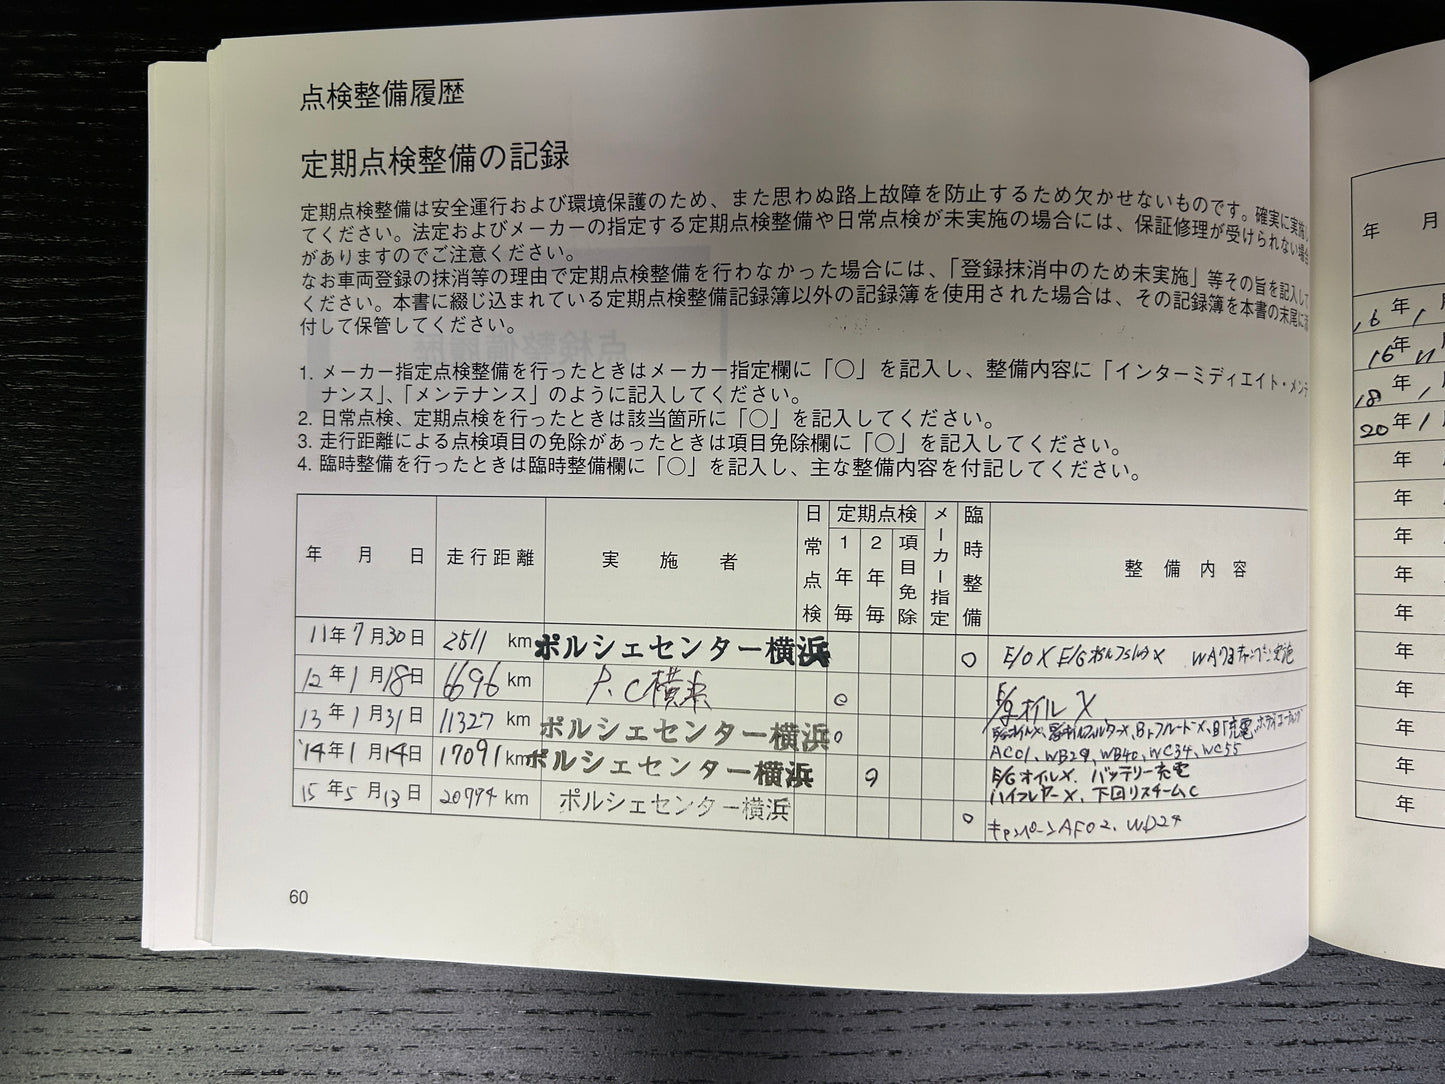 点検整備履歴
定期点検整備の記録
定期点検整備は安全運行および環境保護のため、また思わぬ路上故障を防止するため欠かせないものです。確実に実施し
てください。法定およびメーカーの指定する定期点検整備や日常点検が未実施の場合には、保証修理が受けられない場合
がありますのでご注意ください。
なお車両登録の抹消等の理由で定期点検整備を行わなかった場合には、「登録抹消中のため未実施」等その旨を記入して
ください。本書に綴じ込まれている定期点検整備記録簿以外の記録簿を使用された場合は、その記録簿を本書の末尾に添
付して保管してください。
1. メーカー指定点検整備を行ったときはメーカー指定欄に「○」を記入し、整備内容に「インターミディエイト・メンテ
ナンス」、「メンテナンス」のように記入してください。
2. 日常点検、定期点検を行ったときは該当箇所に「○」を記入してください。
3. 走行距離による点検項目の免除があったときは項目免除欄に「○」を記入してください。
4. 臨時整備を行ったときは臨時整備欄に「○」を記入し、主な整備内容を付記してください。
年 月 日 走行距離 実施者 日常点検 定期点検 1年毎 2年毎 項目免除 メーカー指定 臨時整備 整備内容
11年7月30日 2511 km ポルシェセンター横浜 ○ E/O X E/G
12年1月18日 6696 km P.C横浜 ○ E/gオイル X
13年1月31日 11327 km ポルシェセンター横浜 ○
AC01、WB29、WB40、WC34、WC55
'14年1月14日 17091 km ポルシェセンター横浜 ○ E/GオイルX、バッテリー充電
15年5月13日 20994 km ポルシェセンター横浜 ○ キャンペーンAF02、WD24
60
年 月
16年1月
16年11
18年1
20年1月
年
年
年
年
年
年
年
年
年
年